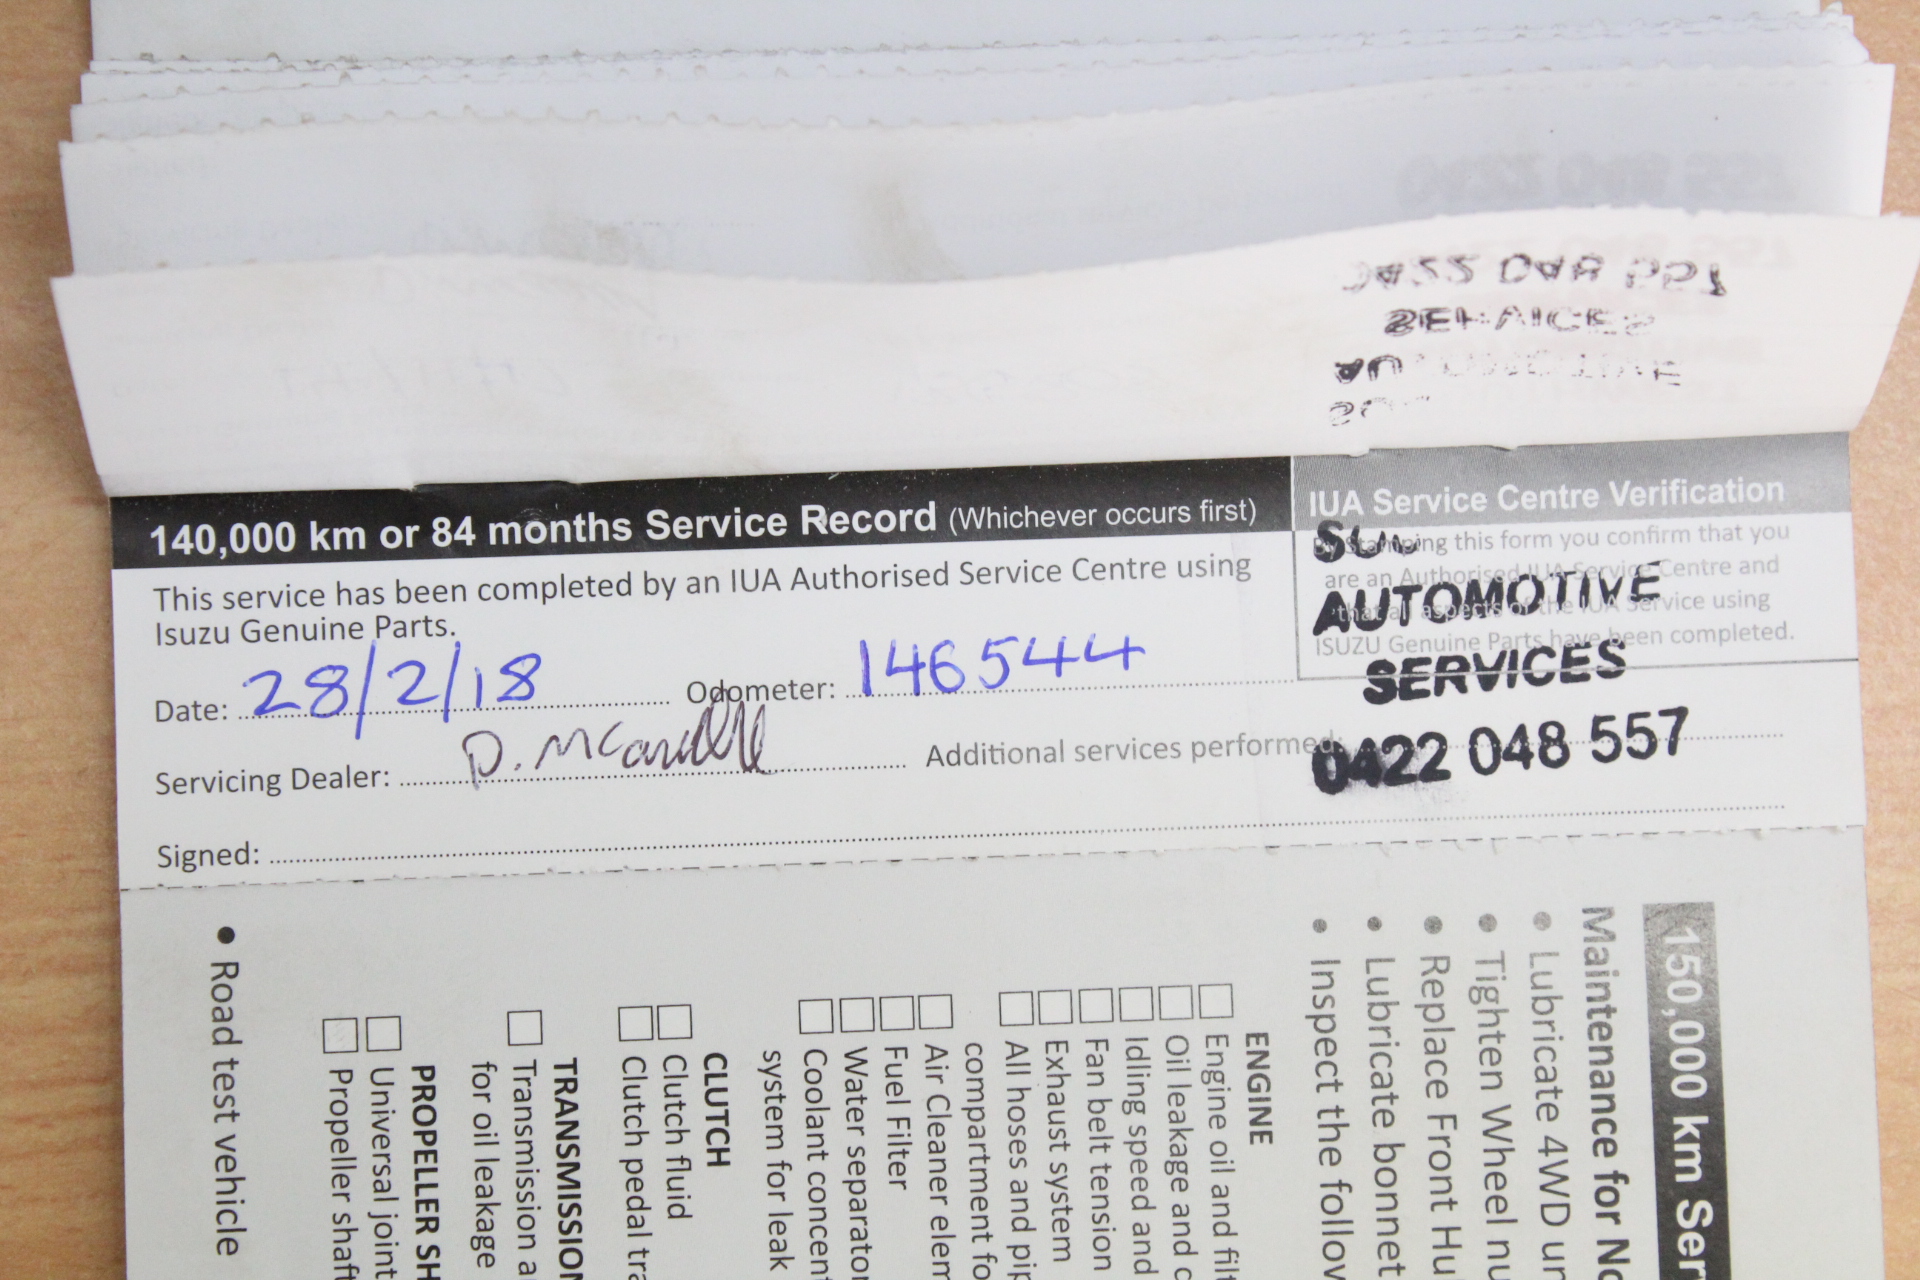 140,000 km or 84 months Service Record (Whichever occurs first)
IUA Service Centre Verification
This service has been completed by an IUA Authorised Service Centre using
Isuzu Genuine Parts.
By Stamping this form you confirm that you
are an Authorised IUA Service Centre and
that all aspects of the IUA Service using
ISUZU Genuine Parts have been completed.
AUTOMOTIVE
SERVICES
0422 048 557
Date: 28/2/18 Odometer: 146544
Servicing Dealer: D. Additional services performed:
Signed:
150,000 km Ser
Maintenance for No
• Lubricate 4WD un
• Tighten Wheel nu
• Replace Front Hu
• Lubricate bonnet
• Inspect the follow
ENGINE
Engine oil and filt
Oil leakage and c
Idling speed and
Fan belt tension
Exhaust system
All hoses and pip
compartment fo
Air Cleaner elem
Fuel Filter
Water separator
Coolant concent
system for leak
CLUTCH
Clutch fluid
Clutch pedal tra
TRANSMISSION
Transmission a
for oil leakage
PROPELLER SH
Universal joint
Propeller shaft
• Road test vehicle